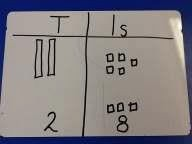 T 1s
2 8